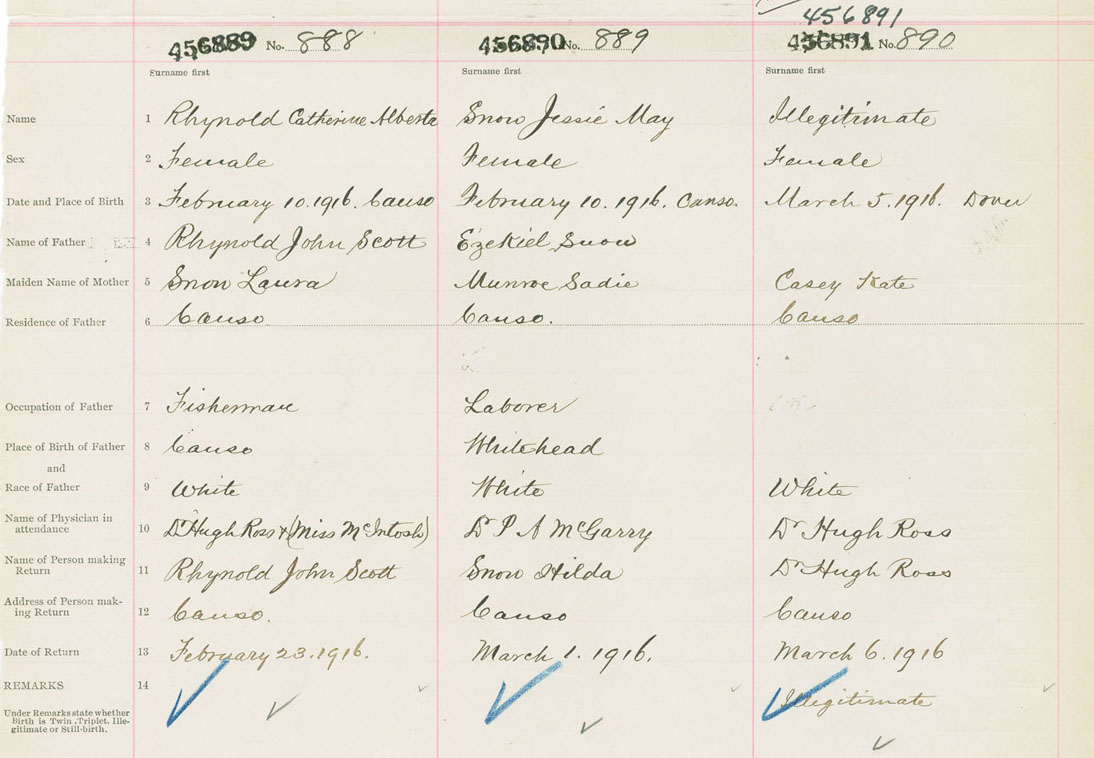 456891
456889 No. 888 456890 No. 889 456891 No. 890
Surname first Surname first Surname first
Name 1 Rhynold Catherine Alberta Snow Jessie May Illegitimate
Sex 2 Female Female Female
Date and Place of Birth 3 February 10. 1916. Canso February 10. 1916. Canso. March 5. 1916. Dover
Name of Father 4 Rhynold John Scott Ezekiel Snow
Maiden Name of Mother 5 Snow Laura Munroe Sadie Casey Kate
Residence of Father 6 Canso Canso. Canso
Occupation of Father 7 Fisherman Laborer
Place of Birth of Father 8 Canso Whitehead
and
Race of Father 9 White White White
Name of Physician in
attendance 10 Dr Hugh Ross & (Miss McIntosh) Dr P A McGarry Dr Hugh Ross
Name of Person making
Return 11 Rhynold John Scott Snow Hilda Dr Hugh Ross
Address of Person mak-
ing Return 12 Canso. Canso Canso
Date of Return 13 February 23. 1916. March 1. 1916. March 6. 1916
REMARKS 14 Illegitimate
Under Remarks state whether
Birth is Twin, Triplet, Ille-
gitimate or Still-birth.